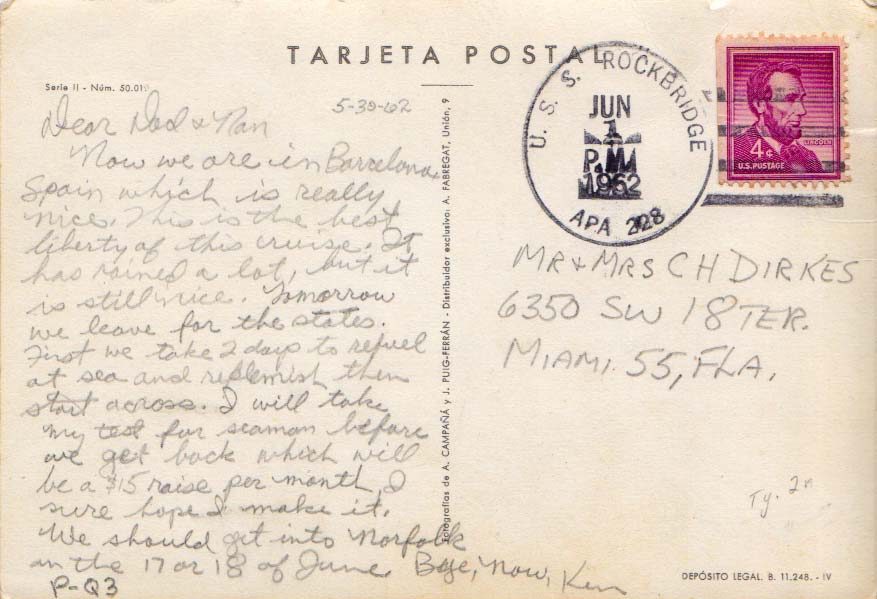 TARJETA POSTAL
Serie II - Núm. 50.019
5-30-62
Dear Dad & Nan
Now we are in Barcelona
Spain which is really
nice. This is the best
liberty of this cruise. It
has rained a lot, but it
is still nice. Tomorrow
we leave for the states.
First we take 2 days to refuel
at sea and replenish then
start across. I will take
my test for seaman before
we get back which will
be a $15 raise per month, I
sure hope I make it.
We should get into Norfolk
on the 17 or 18 of June Bye, Now, Ken
P-Q3
Fotografías de A. CAMPAÑÁ y J. PUIG-FERRÁN - Distribuidor exclusivo: A. FABREGAT, Unión, 9
U. S. S. ROCKBRIDGE
JUN
1
P.M.
1962
APA 228
4¢
LINCOLN
U.S. POSTAGE
MR & MRS C H DIRKES
6350 SW 18 TER.
MIAMI 55, FLA.
Ty.
DEPÓSITO LEGAL. B. 11.248. - IV